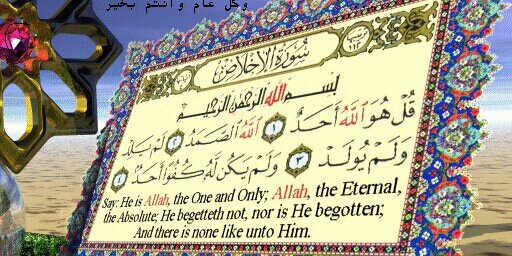 وكل عام وانتم بخير
سُورَةُ الإِخْلَاصِ
بِسْمِ اللَّهِ الرَّحْمَٰنِ الرَّحِيمِ
قُلْ هُوَ اللَّهُ أَحَدٌ ١ اللَّهُ الصَّمَدُ ٢ لَمْ يَلِدْ
وَلَمْ يُولَدْ ٣ وَلَمْ يَكُن لَّهُ كُفُوًا أَحَدٌ ٤
Say: He is Allah, the One and Only; Allah, the Eternal,
the Absolute; He begetteth not, nor is He begotten;
And there is none like unto Him.